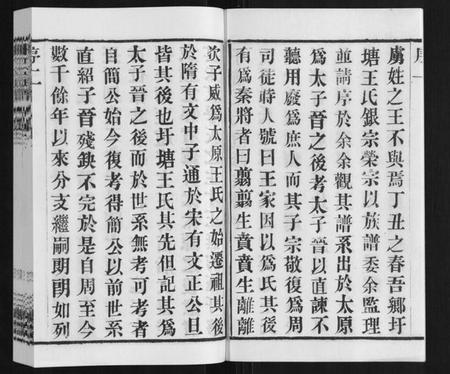 序一
虞姓之王不與焉丁丑之春吾鄉圩
塘王氏銀宗榮宗以族譜委余監理
並請序於余余觀其譜系出於太原
爲太子晉之後考太子晉以直諫不
聽用廢爲庶人而其子宗敬復爲周
司徒時人號曰王家因以爲氏其後
有爲秦將者曰翦翦生賁賁生離離
次子威爲太原王氏之始遷祖其後
於隋有文中子通於宋有文正公旦
皆其後也圩塘王氏其先但記其爲
太子晉之後而於世系無考可考者
自簡公始今復考得簡公以前世系
直紹子晉殘鈌不完於是自周至今
數千餘年以來分支繼嗣朗朗如列
序二